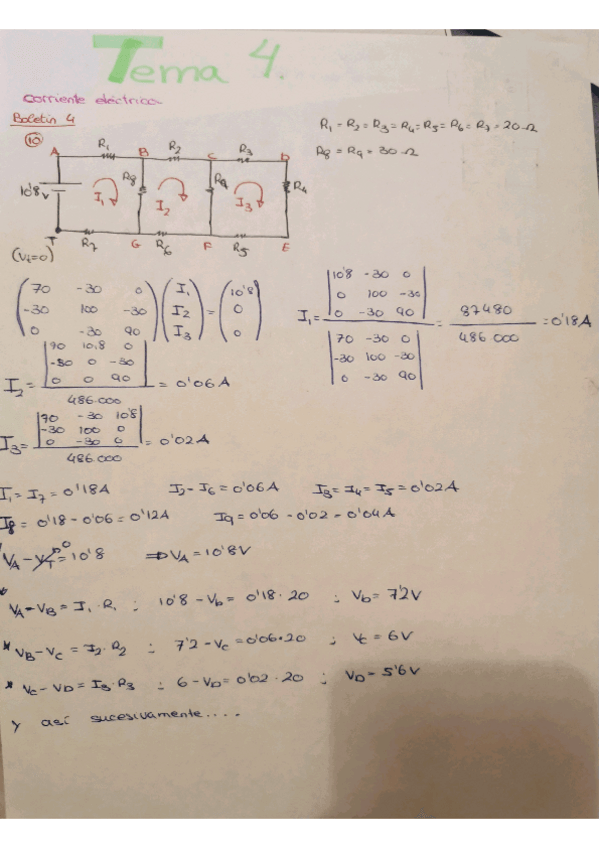 Tema 4.
corriente eléctrica
Boletín 4
R1 = R2 = R3 = R4 = R5 = R6 = R7 = 20 Ω
R8 = R9 = 30 Ω
10
A R1 B R2 C R3 D
10'8 v I1 R8 I2 R9 I3 R4
T R7 G R6 F R5 E
(Vt=0)
( 70 -30 0 ) ( I1 ) = ( 10'8 )
( -30 100 -30 ) ( I2 ) ( 0 )
( 0 -30 90 ) ( I3 ) ( 0 )
I1 = | 10'8 -30 0 | = 87480 = 0'18A
| 0 100 -30 |
| 0 -30 90 |
| 70 -30 0 | 486 000
| -30 100 -30 |
| 0 -30 90 |
I2 = | 70 10.8 0 | = 0'06A
| -30 0 -30 |
| 0 0 90 |
486.000
I3 = | 70 -30 10'8 | = 0'02A
| -30 100 0 |
| 0 -30 0 |
486.000
I1 = I7 = 0'18A I2 = I6 = 0'06A I3 = I4 = I5 = 0'02A
I8 = 0'18 - 0'06 = 0'12A I9 = 0'06 - 0'02 = 0'04A
VA - VT = 10'8 ⇒ VA = 10'8V
0
* VA - VB = I1 · R1 ; 10'8 - Vb = 0'18 · 20 ; Vb = 7'2V
* VB - VC = I2 · R2 ; 7'2 - VC = 0'06 · 20 ; Vc = 6V
* VC - VD = I3 · R3 ; 6 - VD = 0'02 · 20 ; VD = 5'6V
y así sucesivamente....